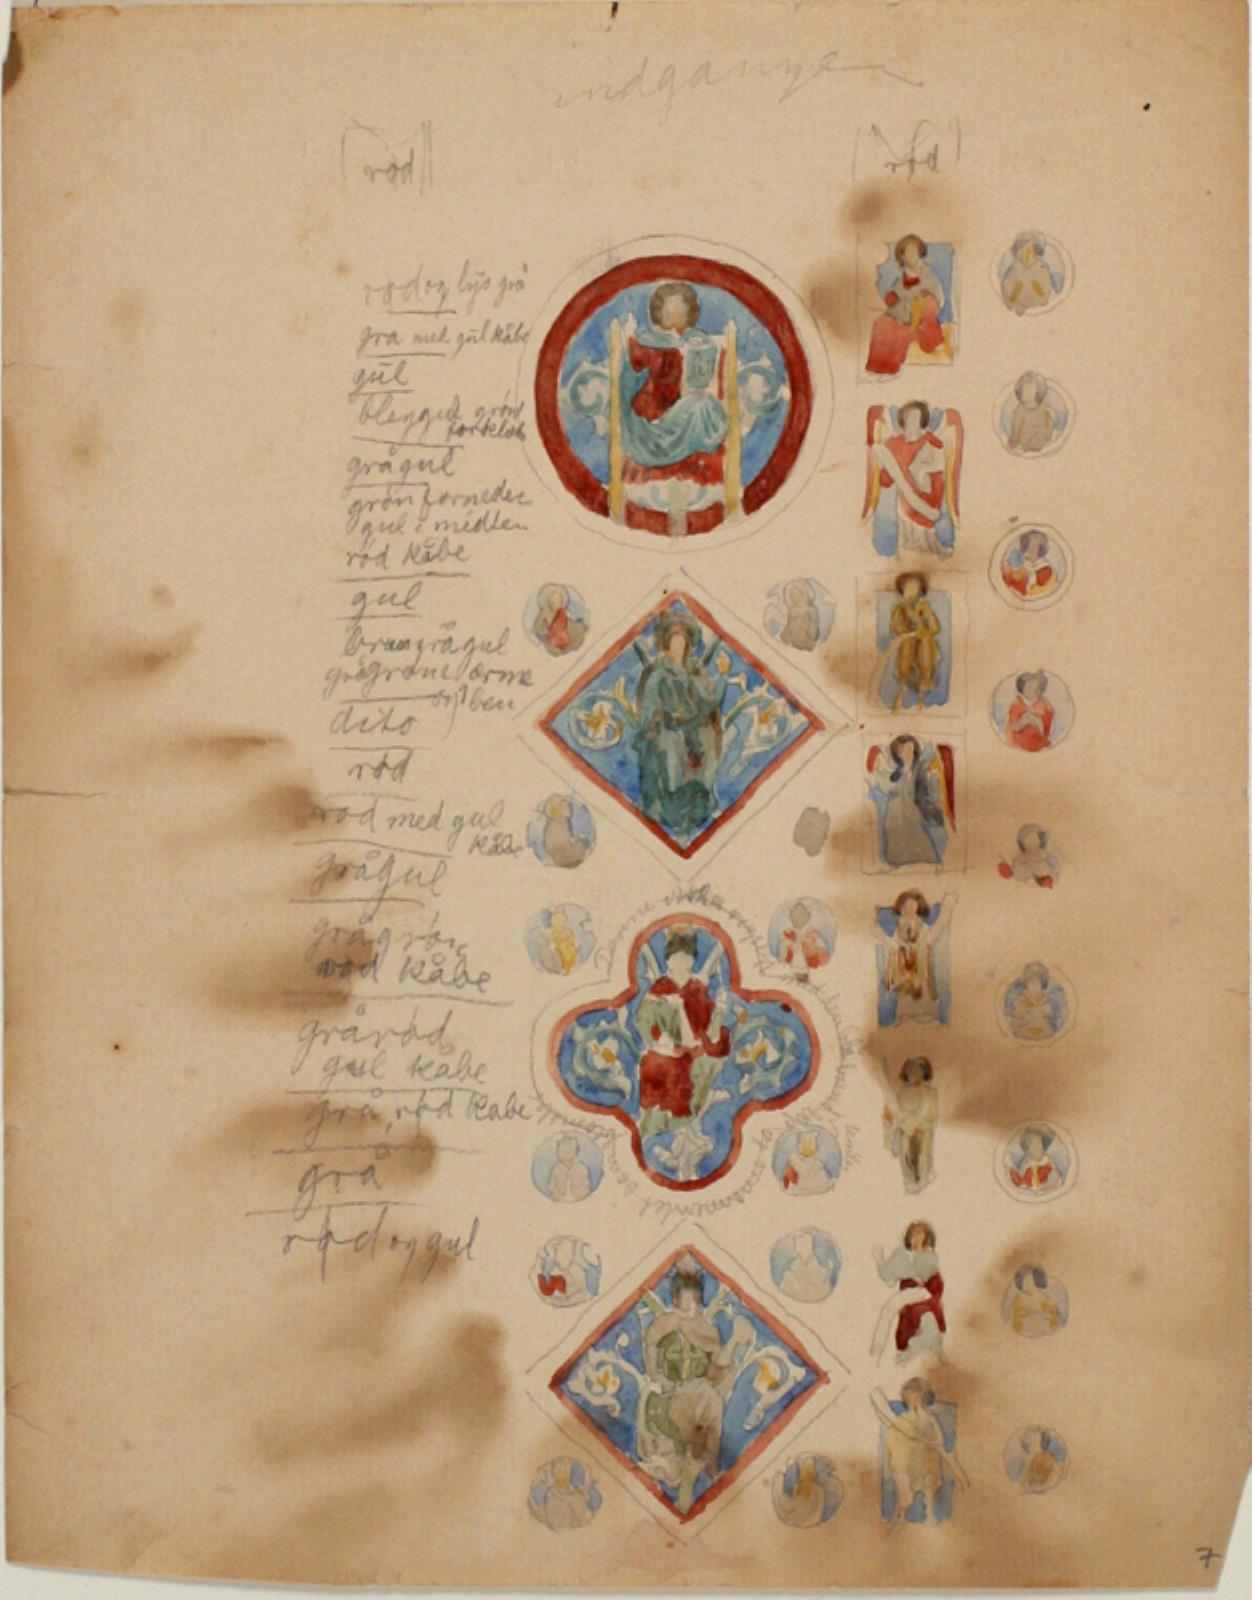 indgangen
rød
rød
rød og lys grå
grå med gul kåbe
gul
grøn
grågul
grøn forneden
gul i midten
rød kåbe
gul
brungrågul
grågrønne ærme
og ben
dito
rød
rød med gul
kåbe
grågul
grågrøn
rød kåbe
grårød
gul kåbe
grå, rød kabe
grå
rød og gul
Denne
7